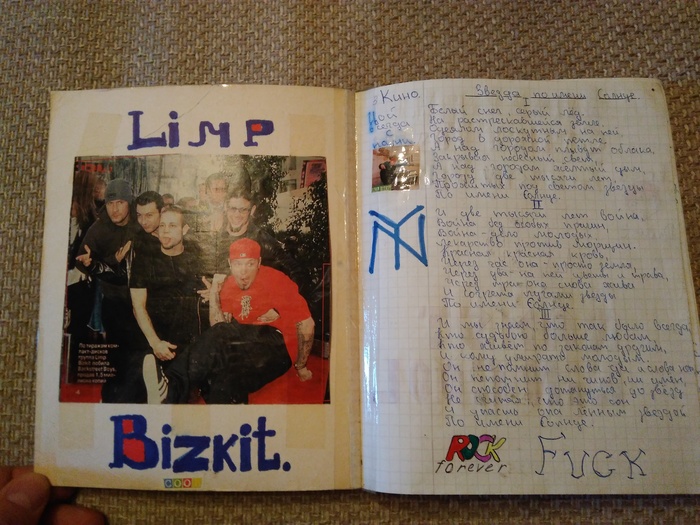 LiMP
По тиражам ком-
пакт-дисков
группа Limp
Bizkit побила
Backstreet Boys,
продав 1,5 мил-
лиона копий
Bizkit.
COO
Кино.
Цой
всегда
с
нами
NY
Звезда по имени Солнце
I
Белый снег, серый лёд,
На растрескавшейся земле.
Одеялом лоскутным на ней
Город в дорожной петле.
А над городом плывут облака,
Закрывая небесный свет.
А над городом жёлтый дым,
Городу две тысячи лет,
Прожитых под светом звезды
По имени Солнце.
II
И две тысячи лет война,
Война без особых причин,
Война - дело молодых
Лекарство против морщин.
Красная, красная кровь,
Через час она просто земля,
Через два на ней цветы и трава,
Через три она снова жива
И согрета лучами звезды
По имени Солнце.
III
И мы знаем, что так было всегда
Кто судьбою больше любим,
Кто живет по законам другим,
И кому умирать молодым.
Он не помнит слова да и слова нет,
Он не помнит ни чинов, ни имён,
Он способен дотянуться до звёзд
Не считая, что это сон
И упасть опалённым звездой
По имени Солнце.
ROCK
forever
FUCK